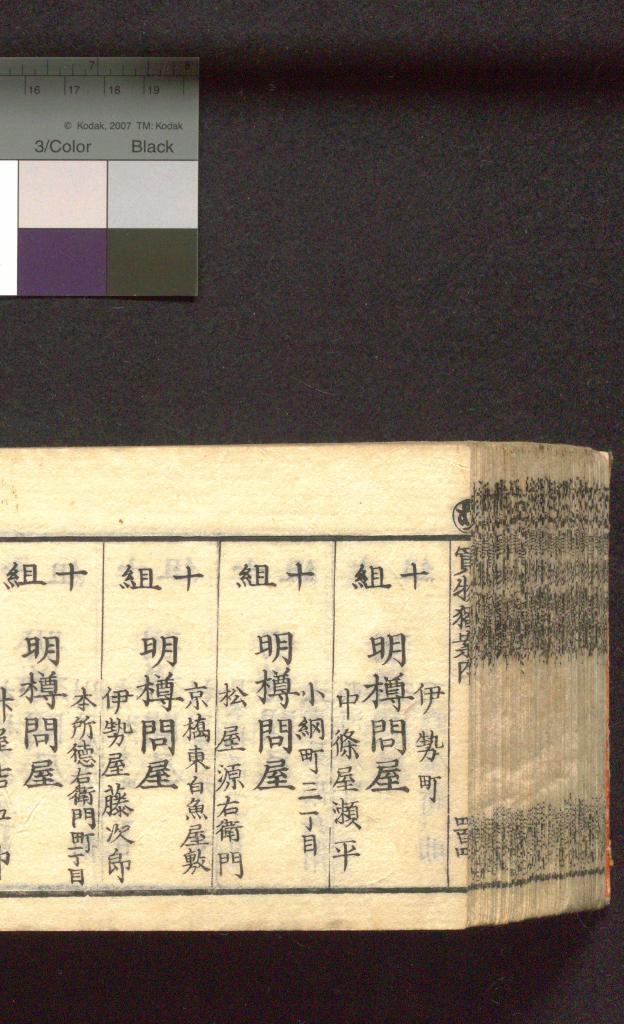 7 8
16 17 18 19
© Kodak, 2007 TM: Kodak
3/Color Black
十組
伊勢町
明樽問屋
中條屋瀬平
十組
小網町三丁目
明樽問屋
松屋源右衛門
十組
京橋東白魚屋敷
明樽問屋
伊勢屋藤次郎
十組
本所徳右衛門町一丁目
明樽問屋